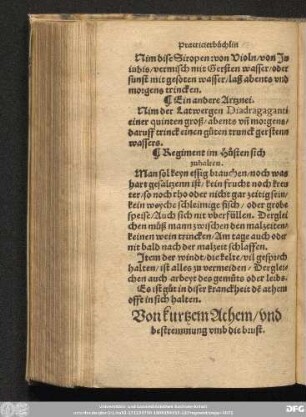 Practicierbüchlin
Nim dise Siropen von Violn/von Ju
iubis/vermisch mit Gersten wasser/oder
sunst mit gesoten wasser/laß abents vnd
morgens trincken.
¶ Ein andere Artznei.
Nim der Latwergen Diadragaganti
einer quinten groß/abents vñ morgens/
daruff trinck einen gůten trunck gersten
wassers.
¶ Regiment im Hůsten sich
zuhalten.
Man sol keyn essig brauchen/noch was
hart gesaltzenn ist/kein frucht noch kreu
ter/so noch rho oder nicht gar zeitig sein/
kein weyche schleimige fisch/oder grobe
speise/Auch sich nit vberfüllen. Derglei
chen můß mann zwischen den malzeiten
keinen wein trincken/Am tage auch oder
nit bald nach der malzeit schlaffen.
Item der windt/die kelte/vil gesprech
halten/ist alles zu vermeiden/Derglei
chen auch arbeyt des gemüts oder leibs.
Es ist gůt in diser kranckheit dē athem
offt in sich halten.
Von kurtzem Athem/vnd
bestemmung vmb die brust.